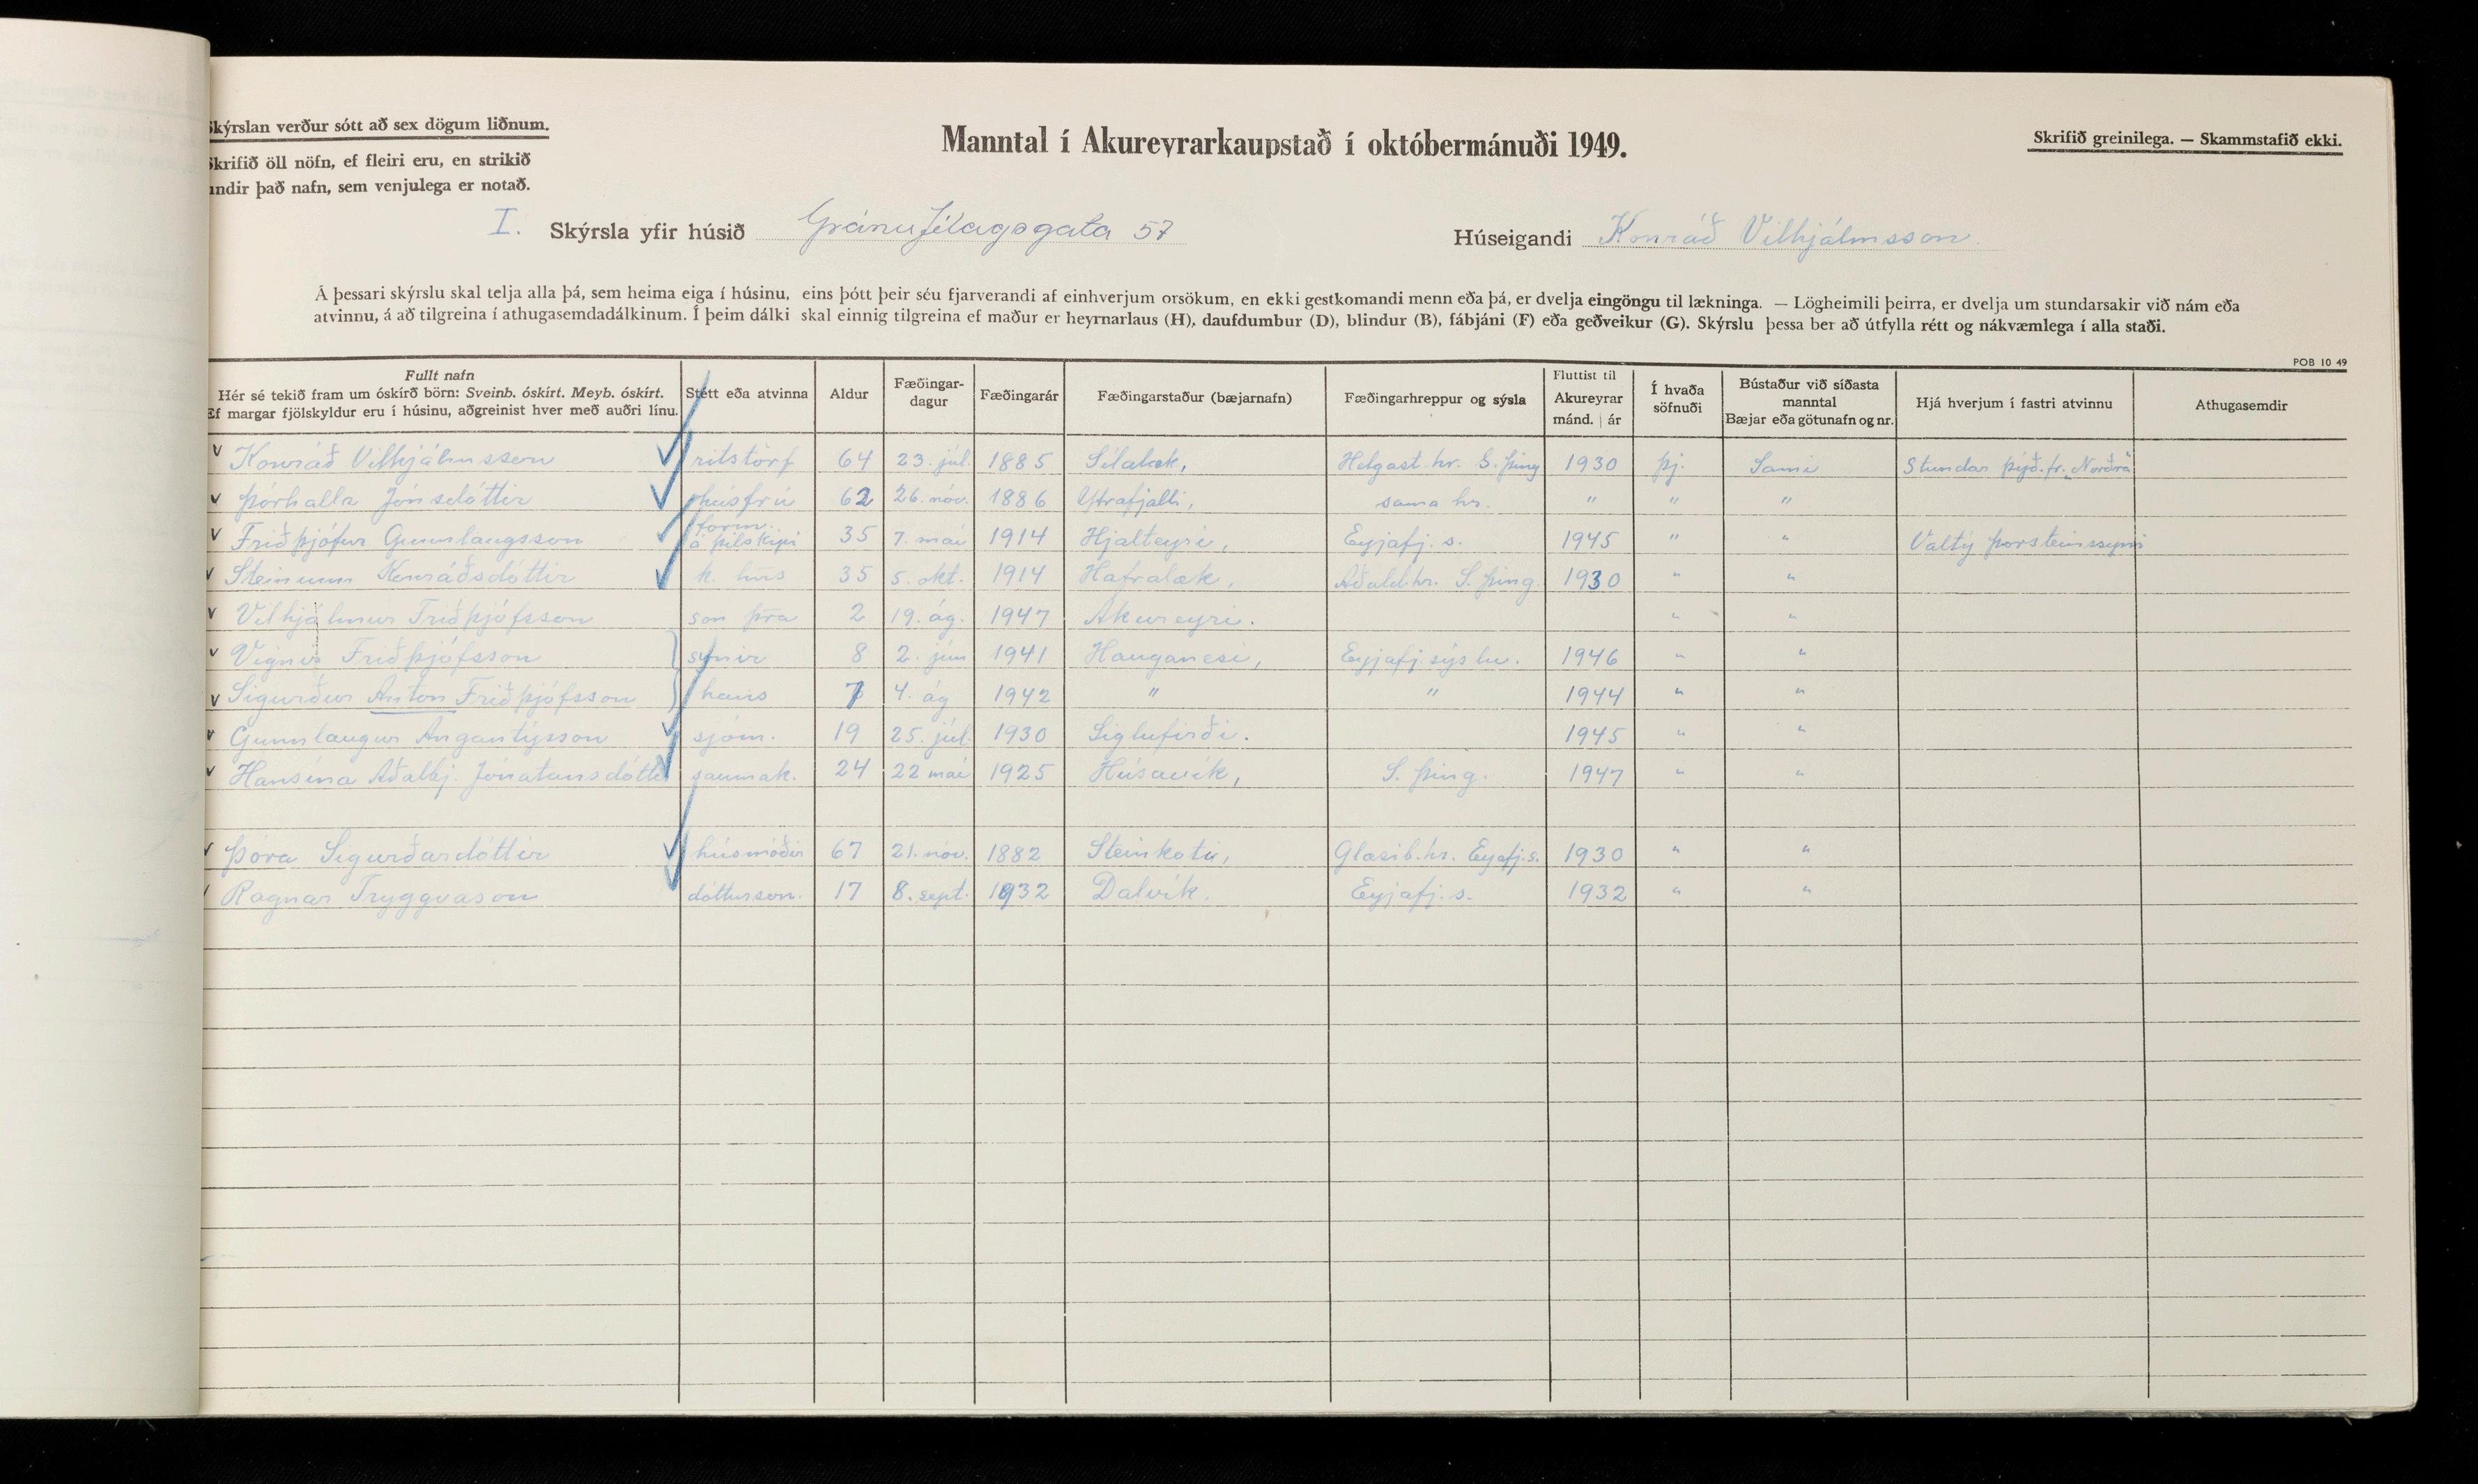 Skýrslan verður sótt að sex dögum liðnum.
Skrifið öll nöfn, ef fleiri eru, en strikið
undir það nafn, sem venjulega er notað.
Manntal í Akureyrarkaupstað í októbermánuði 1949.
Skrifið greinilega. — Skammstafið ekki.
I. Skýrsla yfir húsið Gránufélagsgata 57 Húseigandi Konráð Vilhjálmsson.
Á þessari skýrslu skal telja alla þá, sem heima eiga í húsinu, eins þótt þeir séu fjarverandi af einhverjum orsökum, en ekki gestkomandi menn eða þá, er dvelja eingöngu til lækninga. — Lögheimili þeirra, er dvelja um stundarsakir við nám eða
atvinnu, á að tilgreina í athugasemdadálkinum. Í þeim dálki skal einnig tilgreina ef maður er heyrnarlaus (H), daufdumbur (D), blindur (B), fábjáni (F) eða geðveikur (G). Skýrslu þessa ber að útfylla rétt og nákvæmlega í alla staði.
POB 10 49
Fullt nafn
Hér sé tekið fram um óskírð börn: Sveinb. óskírt. Meyb. óskírt.
Ef margar fjölskyldur eru í húsinu, aðgreinist hver með auðri línu.
Stétt eða atvinna
Aldur
Fæðingar-
dagur
Fæðingarár
Fæðingarstaður (bæjarnafn)
Fæðingarhreppur og sýsla
Fluttist til
Akureyrar
mánd. | ár
Í hvaða
söfnuði
Bústaður við síðasta
manntal
Bæjar eða götunafn og nr.
Hjá hverjum í fastri atvinnu
Athugasemdir
v Konráð Vilhjálmsson ritstörf 64 23. júl. 1885 Sílalæk, Helgast. hr. S. Þing 1930 þj. Sami Stundar þýð. fr. „Norðra"
v Þórhalla Jónsdóttir húsfrú 62 26. nóv. 1886 Ytrafjalli, sama hr. " " "
v Friðþjófur Gunnlaugsson form. á þilskipi 35 7. maí 1914 Hjalteyri, Eyjafj. s. 1945 " " Valtý Þorsteinssyni
v Steinunn Konráðsdóttir k. hans 35 5. okt. 1914 Hafralæk, Aðald.hr. S. Þing. 1930 " "
v Vilhjálmur Friðþjófsson son þra 2 19. ág. 1947 Akureyri. " "
v Vignir Friðþjófsson } synir 8 2. jún 1941 Hauganesi, Eyjafj.sýslu. 1946 " "
v Sigurður Anton Friðþjófsson } hans 7 4. ág 1942 " " 1944 " "
v Gunnlaugur Angantýsson sjóm. 19 25. júl. 1930 Siglufirði. 1945 " "
v Hansína Aðalbj. Jónatansdóttir saumak. 24 22 maí 1925 Húsavík, S. Þing. 1947 " "
v Þóra Sigurðardóttir húsmóðir 67 21. nóv. 1882 Steinkoti, Glæsib.hr. Eyjafj.s. 1930 " "
v Ragnar Tryggvason dóttursson. 17 8. sept. 1932 Dalvík. Eyjafj. s. 1932 " "